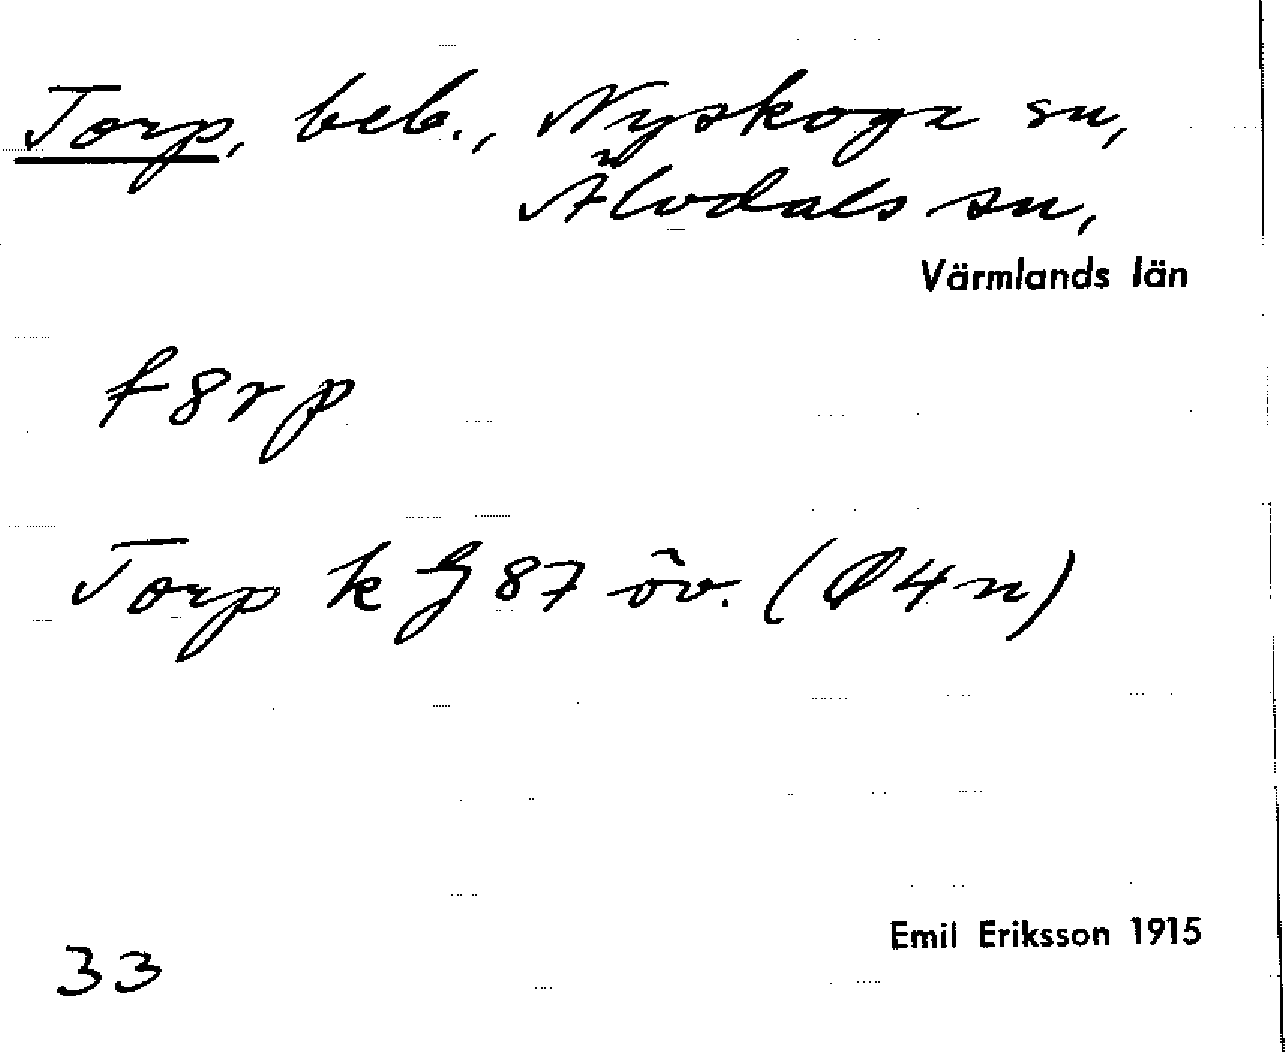 Torp, beb., Nyskoga sn,
Älvdals sn,
Värmlands län
t8rp
Torp k J 87 öv. (Ø4n)
Emil Eriksson 1915
33